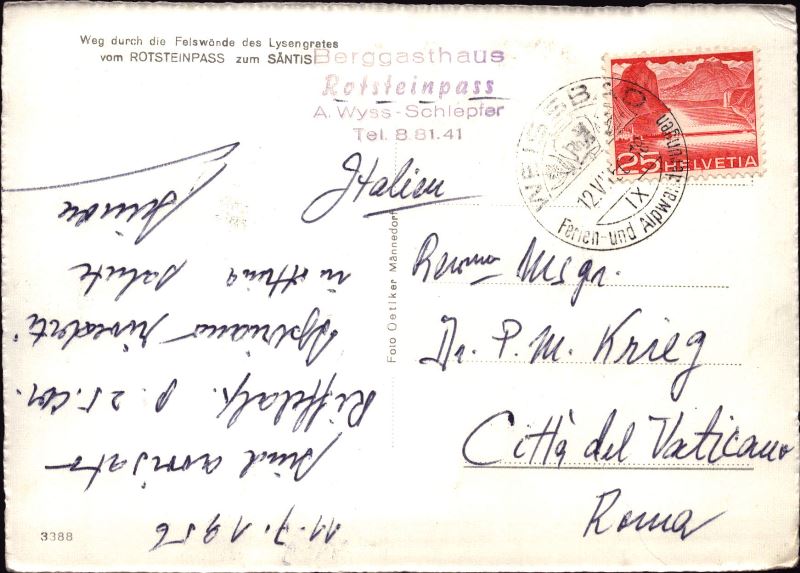 Weg durch die Felswände des Lysengrates
vom ROTSTEINPASS zum SÄNTIS
Berggasthaus
Rotsteinpass
A. Wyss-Schlepfer
Tel. 8.81.41
25 HELVETIA
WEISSBAD
Ferien- und Alpwa
12.VII.
IX
Italien
Msgr.
Dr. P. M. Krieg
Città del Vaticano
Roma
Foto Oetiker Männedorf
11.7.1956
Riffelalp. 25. cor.
in ottima salute
3388